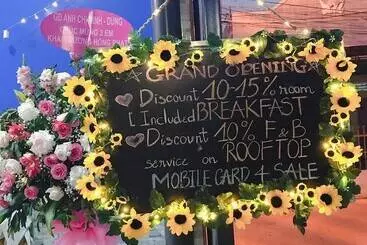 GĐ ANH CHỊ NINH - DUNG
CHÚC MỪNG 3 EM
KHAI TRƯƠNG HỒNG PHÁT
GRAND OPENING
Discount 10-15% room
[Included BREAKFAST
Discount 10% F & B
service on ROOFTOP
MOBILE CARD 4 SALE